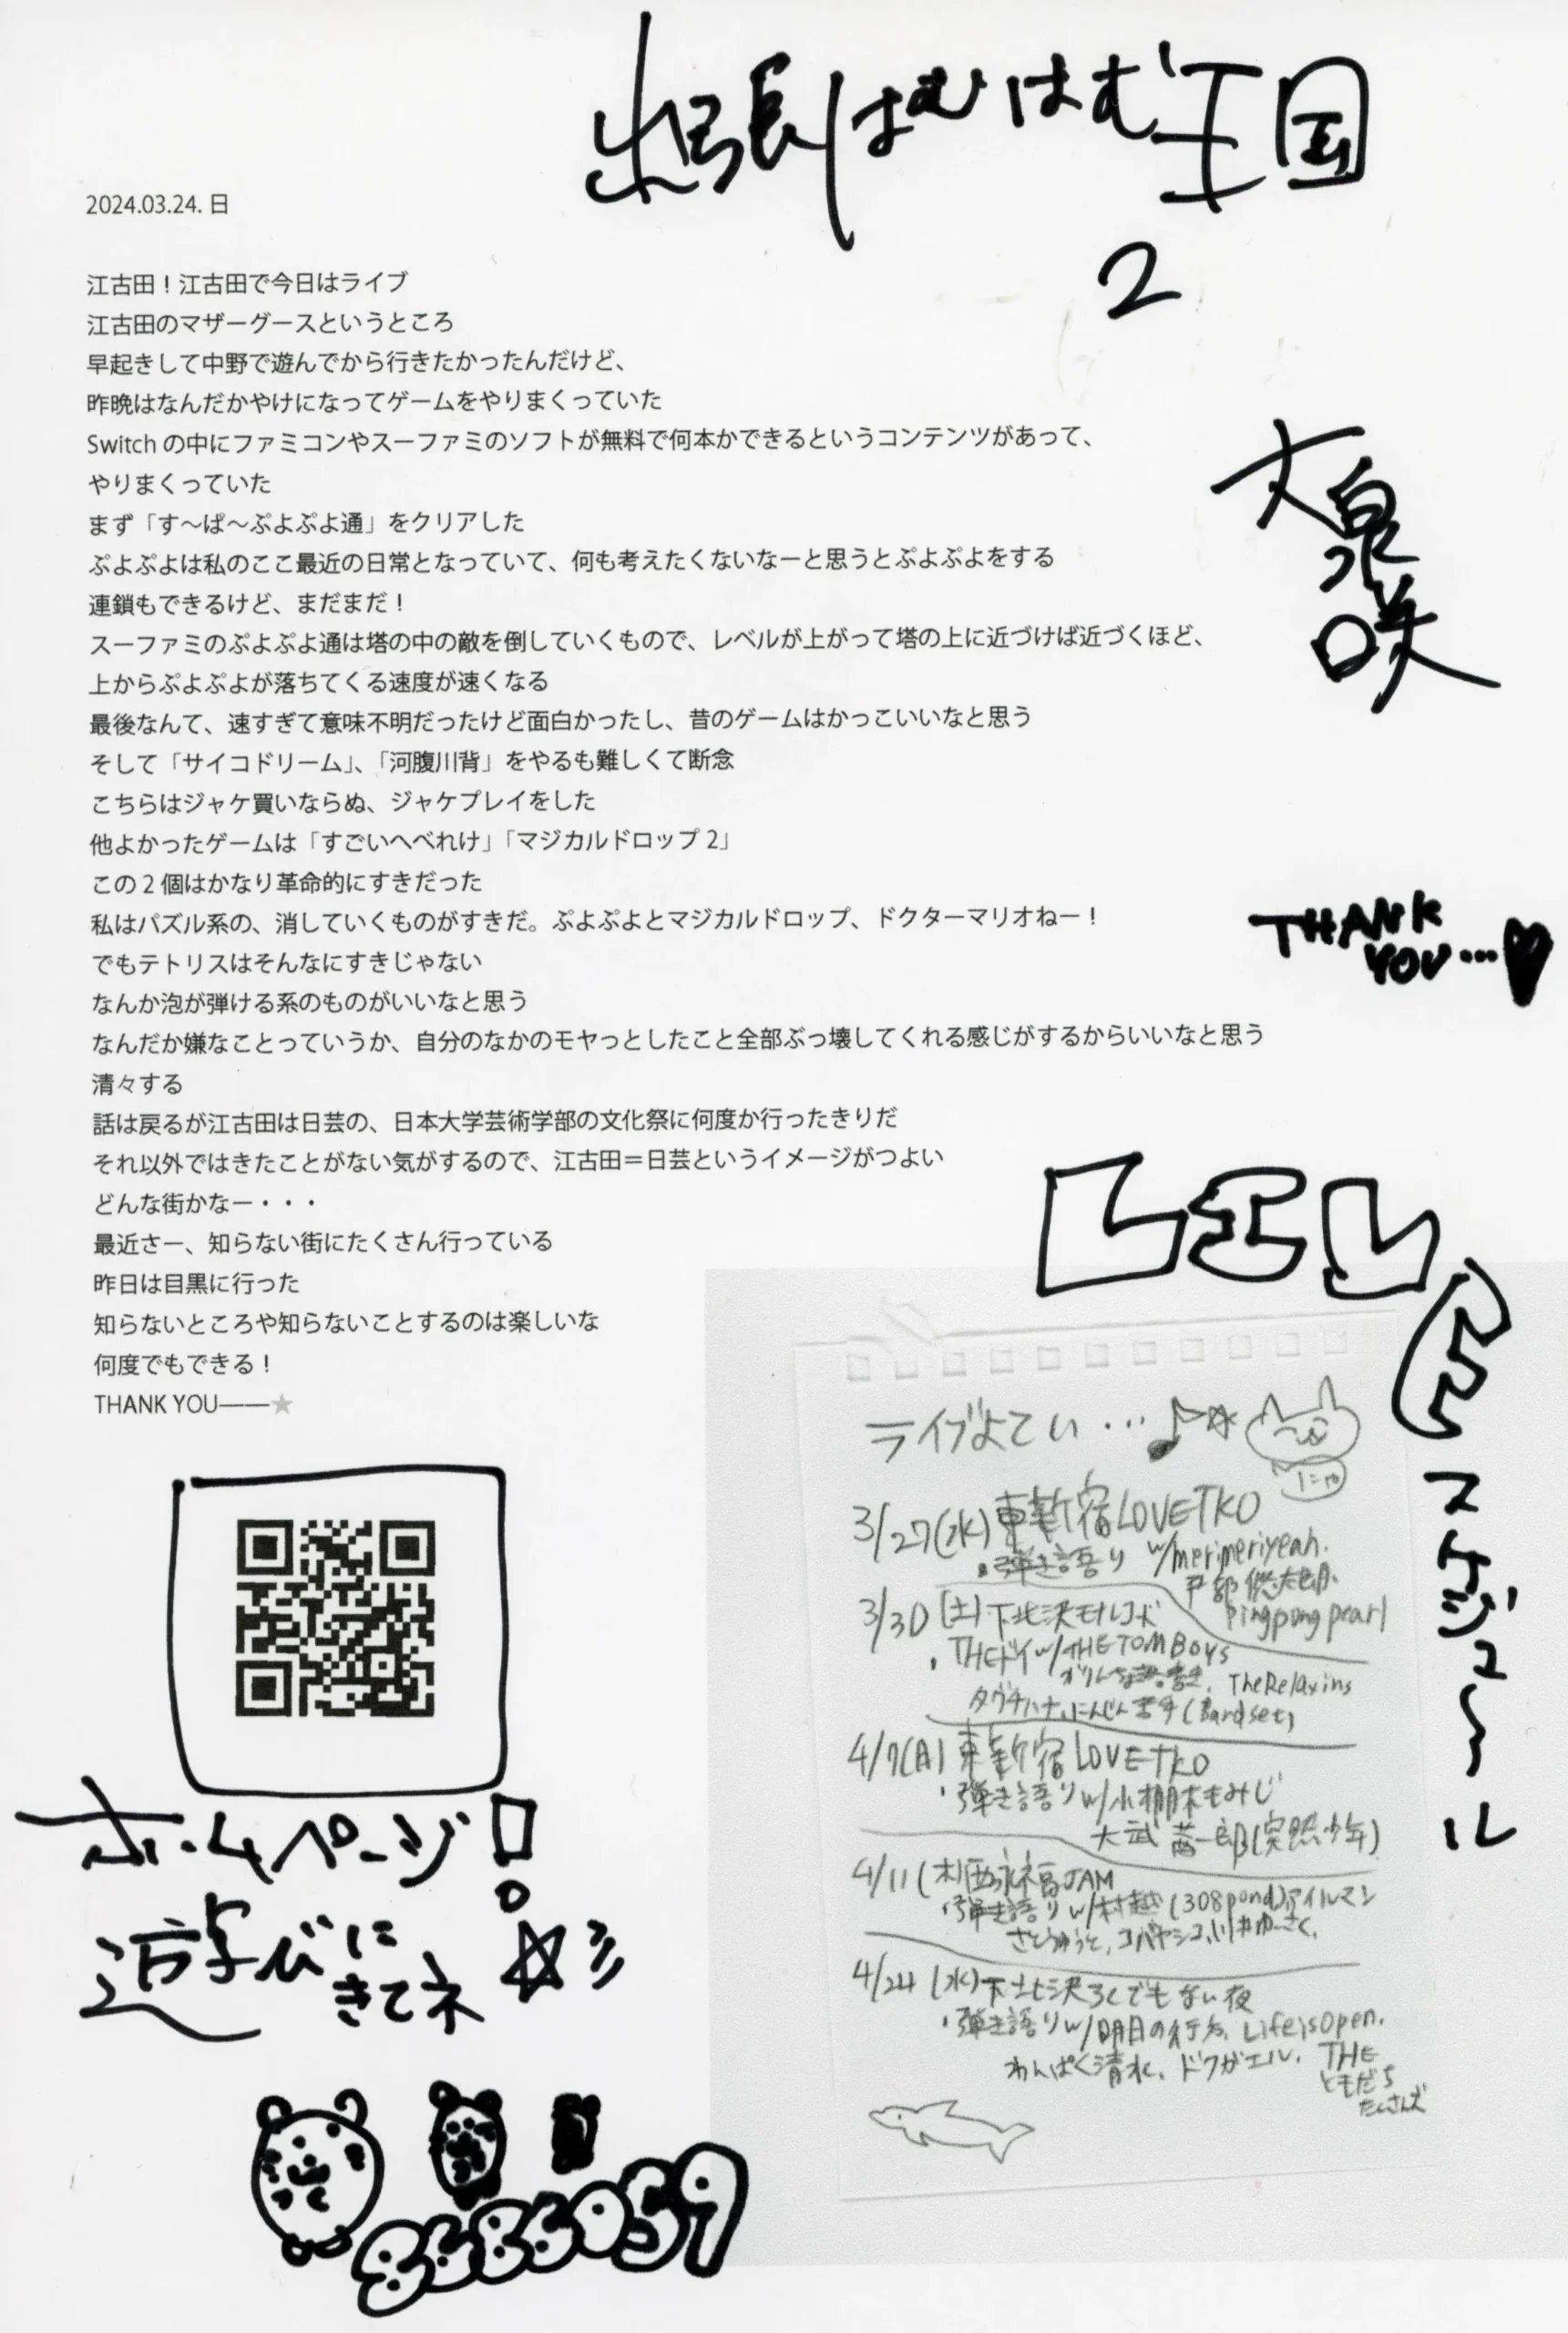 出張はむはむ王国
2
2024.03.24. 日
江古田！江古田で今日はライブ
江古田のマザーグースというところ
早起きして中野で遊んでから行きたかったんだけど、
昨晩はなんだかやけになってゲームをやりまくっていた
Switch の中にファミコンやスーファミのソフトが無料で何本かできるというコンテンツがあって、
やりまくっていた
まず「す～ぱ～ぷよぷよ通」をクリアした
ぷよぷよは私のここ最近の日常となっていて、何も考えたくないなーと思うとぷよぷよをする
連鎖もできるけど、まだまだ！
スーファミのぷよぷよ通は塔の中の敵を倒していくもので、レベルが上がって塔の上に近づけば近づくほど、
上からぷよぷよが落ちてくる速度が速くなる
最後なんて、速すぎて意味不明だったけど面白かったし、昔のゲームはかっこいいなと思う
そして「サイコドリーム」、「河腹川背」をやるも難しくて断念
こちらはジャケ買いならぬ、ジャケプレイをした
他よかったゲームは「すごいへべれけ」「マジカルドロップ 2」
この 2 個はかなり革命的にすきだった
私はパズル系の、消していくものがすきだ。ぷよぷよとマジカルドロップ、ドクターマリオねー！
でもテトリスはそんなにすきじゃない
なんか泡が弾ける系のものがいいなと思う
なんだか嫌なことっていうか、自分のなかのモヤっとしたこと全部ぶっ壊してくれる感じがするからいいなと思う
清々する
話は戻るが江古田は日芸の、日本大学芸術学部の文化祭に何度か行ったきりだ
それ以外ではきたことがない気がするので、江古田＝日芸というイメージがつよい
どんな街かなー・・・
最近さー、知らない街にたくさん行っている
昨日は目黒に行った
知らないところや知らないことするのは楽しいな
何度でもできる！
THANK YOU――★
大泉咲
THANK
YOU…♥
LIVE
スケジュ～ル
ライブよてい…♪☆
3/27(水) 東新宿LOVETKO
・弾き語り w/merimeriyeah.
pingpong pearl
3/30(土) 下北沢モナレコード
・THEドイ w/THE TOMBOYS
TheRelaxins
タグチハナ、にんじん苦手(Band set)
4/7(日) 東新宿LOVETKO
・弾き語り w/小棚木もみじ
大武茜一郎(突然少年)
4/11(木)西永福JAM
・弾き語り w/村越(308pond)アイルマン
さとうゆうと、コバヤシコ、川井ゆーさく、
4/24(水)下北沢ろくでもない夜
・弾き語り w/明日の行方、LifeisOpen.
わんぱく清水、ドクガエル、THE
ともだち
たくさんズ
ホームページ！
遊びに
きてネ☆